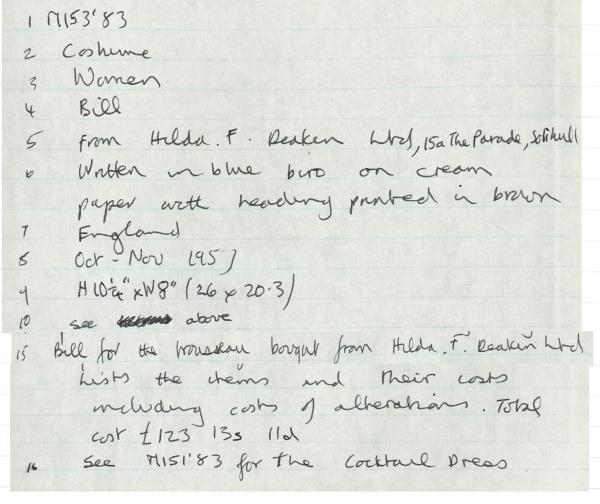 1 M153'83
2 Costume
3 Women
4 Bill
5 from Hilda. F. Deaken Ltd, 15a The Parade, Solihull
6 Written in blue biro on cream
paper with heading printed in brown
7 England
8 Oct - Nov 1957
9 H 10¼" x W 8" (26 x 20.3)
10 see above
15 Bill for the trousseau bought from Hilda. F. Deakin Ltd
Lists the items and their costs
including costs of alterations. Total
cost £123 13s 11d
16 See M151'83 for the Cocktail Dress